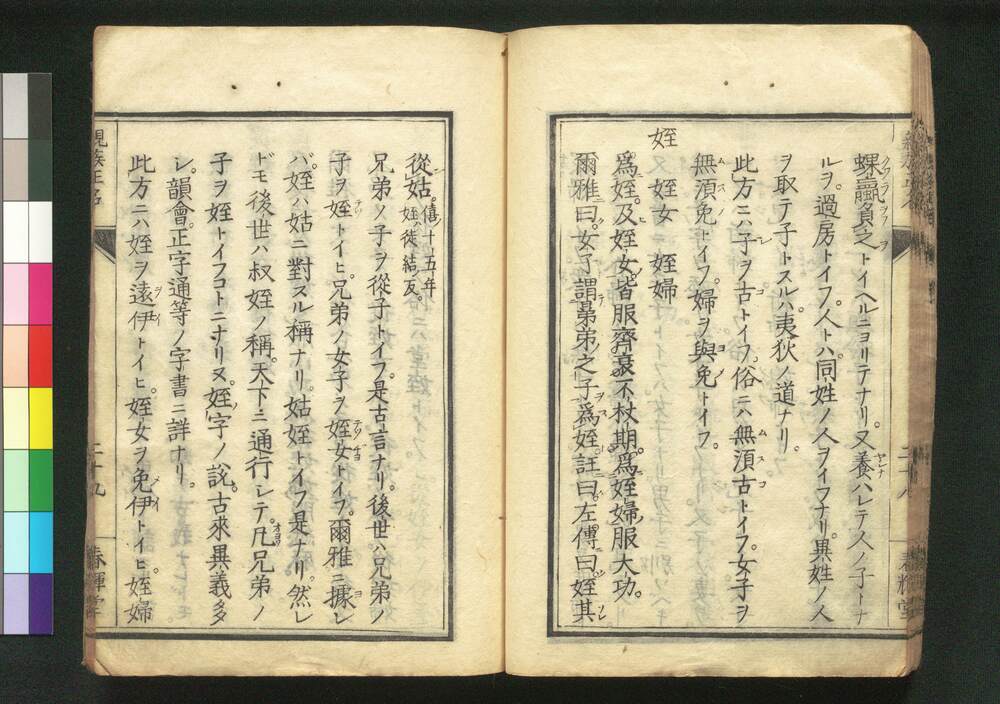 蜾蠃負之トイヘルニヨリテナリ。又養ハレテ人ノ子トナ
ルヲ。過房トイフ。人トハ。同姓ノ人ヲイフナリ。異姓ノ人
ヲ取テ子トスルハ。夷狄ノ道ナリ。
此方ニハ。子ヲ古トイフ。俗ニハ無湏古トイフ。女子ヲ
無湏免トイフ。婦ヲ與免トイフ。
姪 姪女 姪婦
爲姪。及姪女。皆服齊衰不杖期。爲姪婦服大功。
爾雅曰。女子謂晜弟之子爲姪。註曰。左傳曰姪其
從姑。僖十五年
姪ハ徒結ノ反。
兄弟ノ子ヲ從子トイフ。是古言ナリ。後世ハ兄弟ノ
子ヲ姪トイヒ。兄弟ノ女子ヲ姪女トイフ。爾雅ニ據レ
バ。姪ハ姑ニ對スル稱ナリ。姑姪トイフ是ナリ。然レ
ドモ後世ハ叔姪ノ稱。天下ニ通行シテ。凡兄弟ノ
子ヲ姪トイフコトニナリヌ。姪ノ字ノ說。古來異義多
シ。韻會。正字通等ノ字書ニ詳ナリ。
此方ニハ姪ヲ遠伊トイヒ。姪女ヲ免伊トイヒ。姪婦
親族正名
二十九
春輝堂